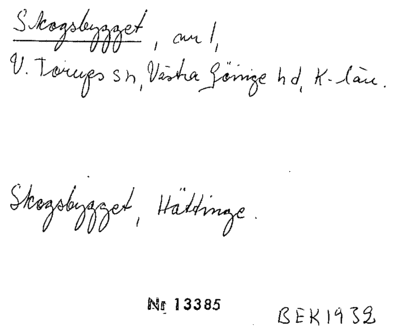 Skogsbygget, nr 1,
V. Torups sn, Västra Göinge hd, K-län.
Skogsbygget, Hättinge.
Nr 13385
BEK1932